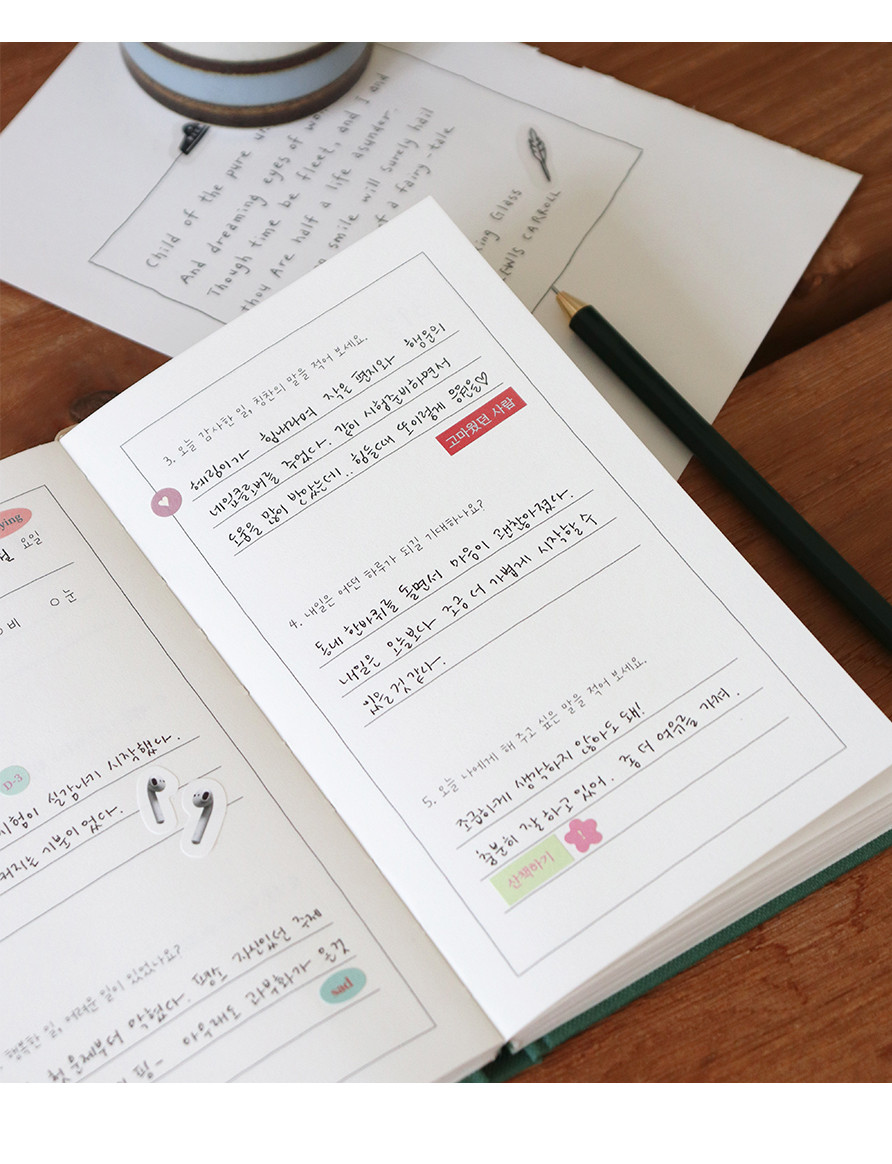 Child of the pure
And dreaming eyes of
Though time be fleet, and I and
thou Are half a life asunder.
smile will surely hail
of a fairy-tale
king Glass
LEWIS CARROLL
ying
요일
비 눈
D-3
시험이 실감나기 시작했다.
커지는 기분이었다.
행복한 일, 어려운 일이 있었나요?
첫 문제부터 막혔다. 평소 자신있던 주제
아무래도 과부화가 온것
sad
3. 오늘 감사한 일, 칭찬의 말을 적어 보세요.
혜림이가 힘내라며 작은 편지와 행운의
네잎클로버를 주었다. 같이 시험준비하면서
도움을 많이 받았는데.. 힘들때 또 이렇게 응원을♡
고마웠던 사람
4. 내일은 어떤 하루가 되길 기대하나요?
동네 한바퀴를 돌면서 마음이 괜찮아졌다.
내일은 오늘보다 조금 더 가볍게 시작할 수
있을 것 같다.
5. 오늘 나에게 해 주고 싶은 말을 적어 보세요.
조급하게 생각하지 않아도 돼!
충분히 잘 하고 있어. 좀 더 여유를 가져.
산책하기
!